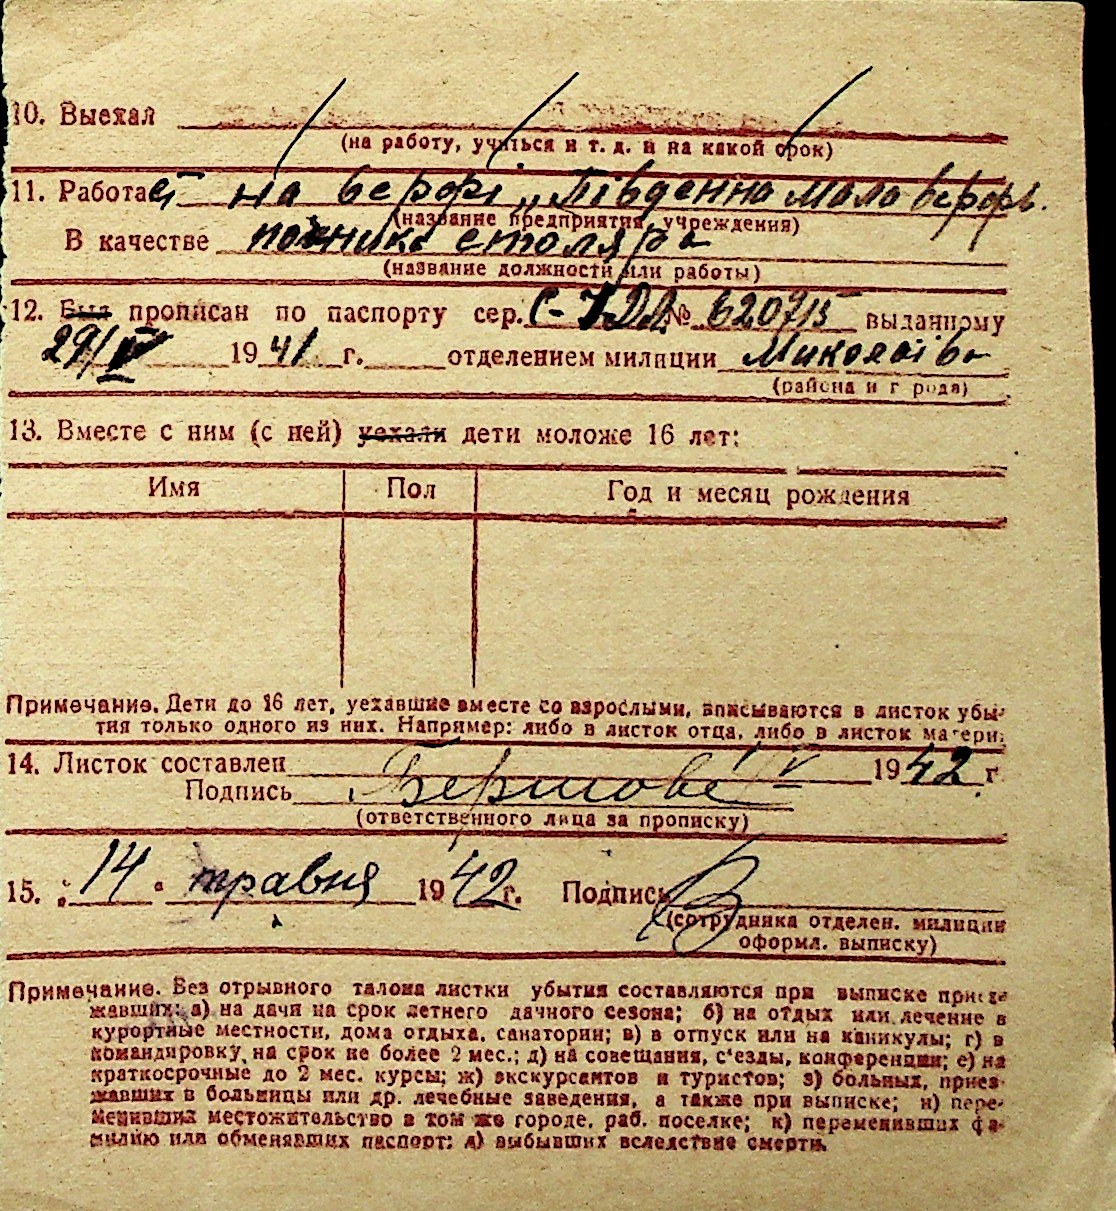 10. Выехал
(на работу, учиться и т. д. и на какой срок)
11. Работает на верфі „Південна мала верфь.
(название предприятия, учреждения)
В качестве столяра
(название должности или работы)
12. Был прописан по паспорту сер. № 620715 выданному
29/IV 1941 г. отделением милиции Миколаїва
(района и г рода)
13. Вместе с ним (с ней) уехали дети моложе 16 лет:
Имя Пол Год и месяц рождения
Примечание. Дети до 16 лет, уехавшие вместе со взрослыми, вписываются в листок убы-
тия только одного из них. Например: либо в листок отца, либо в листок матери.
14. Листок составлен V 1942 г.
Подпись
(ответственного лица за прописку)
15. „14“ травня 1942 г. Подпись
(сотрудника отделен. милиции
оформл. выписку)
Примечание. Без отрывного талона листки убытия составляются при выписке приез-
жавших: а) на дачи на срок летнего дачного сезона; б) на отдых или лечение в
курортные местности, дома отдыха, санатории; в) в отпуск или на каникулы; г) в
командировку на срок не более 2 мес.; д) на совещания, с'езды, конференции; е) на
краткосрочные до 2 мес. курсы; ж) экскурсантов и туристов; з) больных, приез-
жавших в больницы или др. лечебные заведения, а также при выписке; и) пере-
менивших местожительство в том же городе, раб. поселке; к) переменивших фа-
милию или обменявших паспорт; л) выбывших вследствие смерти.